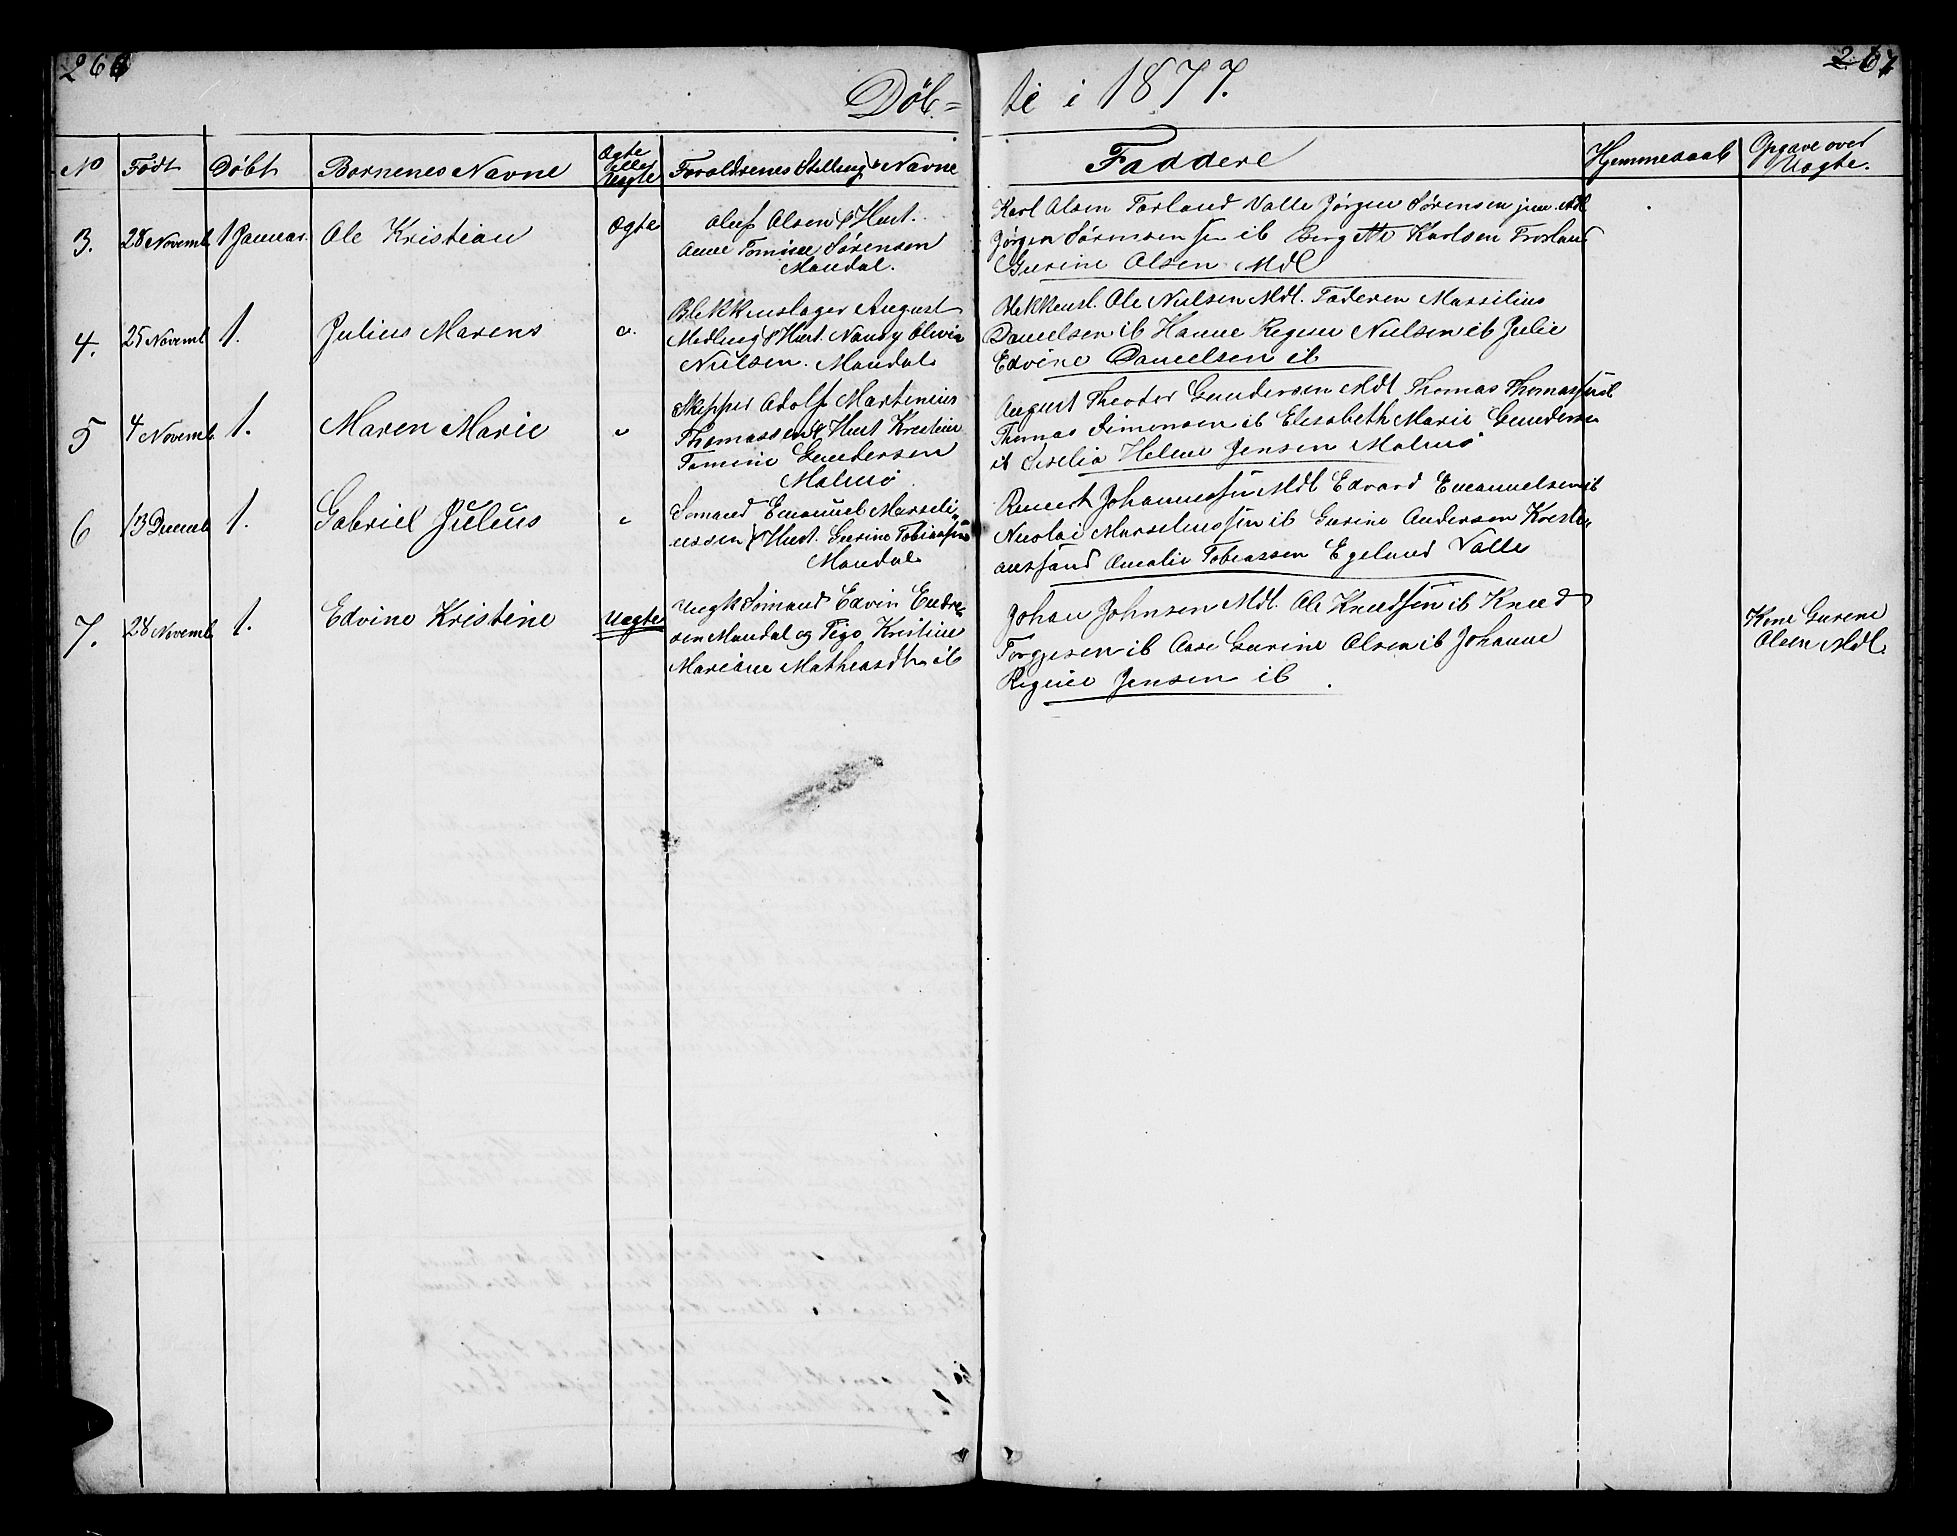 266
267
Døb=
te i 1877.
No
Født
Døbt
Børnenes Navne
Ægte
Eller
Uægte
Foraldrenes Stelling & Navne
Faddere
Hjemmedaab
Opgave over
Uægte.
3.
28 Novemb
1 Januar.
Ole Kristian
Ægte
Oluf Olsen & Hust.
Anne Tomine Sørensen
Mandal.
Karl Olsen Valle Jørgen Sørensen jun. Mdl
Jørgen Sørensen ib Karlsen
Gurine Olsen Mdl
4.
25 Novemb
1.
Julius Marens
Blekkenslager August
& Hust. Nandy Olivia
Nielsen. Mandal
Blekkensl. Ole Nielsen Mdl. Faderen Marsilius
Danielsen ib Hanne Regine Nielsen ib Julie
Edvine Danielsen ib
5
4 Novemb
1.
Maren Marie
Skipper Adolf Martinius
Thomassen & Hust Kristine
Tomine Gundersen
Malmø
August Theodor Gundersen Mdl Thomas Thomassen ib
Thomas Simonsen ib Elisabeth Marie Gunderse
Helene Jensen Malmø
6
13 Decemb
1.
Gabriel Julius
Sømand Emanuel Marseli=
ussen & Hust. Gurine Tobiassen
Mandal
Reinert Johannessen Mdl Edvard Emanuelsen ib
Nicolai Marseliussen ib Gurine Andersen Kristi=
ansand Amalie Tobiassen Egelund Valle
7.
28 Novemb
1.
Edvine Kristine
Uægte
Ungk Sømand Edvin Endre=
sen Mandal og Pige Kristine
Mariane Mathiasdtr. ib
Johan Johnsen Mdl. Ole Knudsen ib Knud
Torgjesen ib Aase Gurine Olsen ib Johanne
Regine Jensen ib.
Kone Gurine
Olsen Mdl.